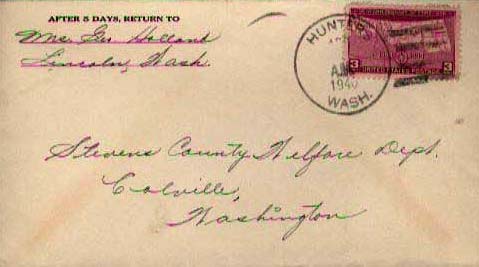 AFTER 5 DAYS, RETURN TO
Mrs. Geo Holland
Lincoln, Wash.
HUNTERS
A.M.
1940
WASH.
3
3
UNITED STATES POSTAGE
Stevens County Welfare Dept.
Colville,
Washington